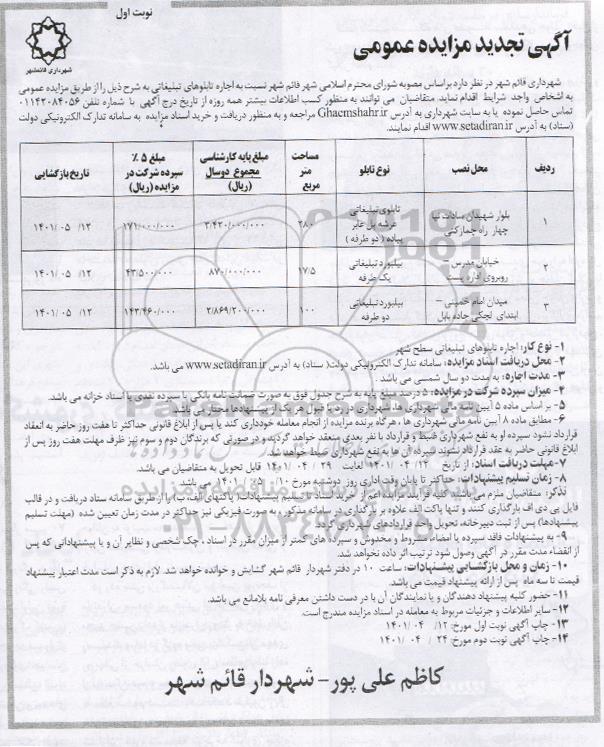 نوبت اول
شهرداری قائمشهر
آگهی تجدید مزایده عمومی
شهرداری قائم شهر در نظر دارد براساس مصوبه شورای محترم اسلامی شهر قائم شهر نسبت به اجاره تابلوهای تبلیغاتی به شرح ذیل را از طریق مزایده عمومی
به اشخاص واجد شرایط اقدام نماید. متقاضیان می توانند به منظور کسب اطلاعات بیشتر همه روزه از تاریخ درج آگهی با شماره تلفن ۰۱۱۴۲۰۸۴۰۵۶
تماس حاصل نموده یا به سایت شهرداری به آدرس Ghaemshahr.ir مراجعه و به منظور دریافت و خرید اسناد مزایده به سامانه تدارک الکترونیکی دولت
(ستاد) به آدرس www.setadiran.ir اقدام نمایند.
ردیف | محل نصب | نوع تابلو | مساحت متر مربع | مبلغ پایه کارشناسی مجموع دوسال (ریال) | مبلغ ۵ ٪ سپرده شرکت در مزایده (ریال) | تاریخ بازگشایی
۱ | بلوار شهیدان سادات نیا چهار راه جمارکتی | تابلوی تبلیغاتی عرشه پل عابر پیاده ( دو طرفه ) | ۲۸۰ | ۳/۴۲۰/۰۰۰/۰۰۰ | ۱۷۱/۰۰۰/۰۰۰ | ۱۴۰۱/۰۵/۱۲
۲ | خیابان مدرس – روبروی اداره پست | بیلبورد تبلیغاتی یک طرفه | ۱۷/۵ | ۸۷۰/۰۰۰/۰۰۰ | ۴۳/۵۰۰/۰۰۰ | ۱۴۰۱/۰۵/۱۲
۳ | میدان امام خمینی – ابتدای لچکی جاده بابل | بیلبورد تبلیغاتی دو طرفه | ۱۰۰ | ۲/۸۶۹/۲۰۰/۰۰۰ | ۱۴۳/۴۶۰/۰۰۰ | ۱۴۰۱/۰۵/۱۲
۱- نوع کار: اجاره تابلوهای تبلیغاتی سطح شهر
۲- محل دریافت اسناد مزایده: سامانه تدارک الکترونیکی دولت( ستاد) به آدرس www.setadiran.ir می باشد.
۳- مدت اجاره: به مدت دو سال شمسی می باشد .
۴- میزان سپرده شرکت در مزایده: ۵ درصد مبلغ پایه به شرح جدول فوق به صورت ضمانت نامه بانکی یا سپرده نقدی یا اسناد خزانه می باشد.
۵- بر اساس ماده ۵ آیین نامه مالی شهرداری ها، شهرداری در رد یا قبول هر یک از پیشنهادها مختار می باشد.
۶- مطابق ماده ۸ آیین نامه مالی شهرداری ها ، هر گاه برنده مزایده از انجام معامله خودداری کند یا پس از ابلاغ قانونی حداکثر تا هفت روز حاضر به انعقاد
قرارداد نشود سپرده او به نفع شهرداری ضبط و قرارداد با نفر بعدی منعقد خواهد گردید و در صورتی که برندگان دوم و سوم نیز ظرف مهلت هفت روز پس از
ابلاغ قانونی حاضر به عقد قرارداد نشوند سپرده آن ها به نفع شهرداری ضبط خواهد شد.
۷- مهلت دریافت اسناد: از تاریخ ۱۴۰۱/۰۴/۱۲ لغایت ۱۴۰۱/۰۴/۲۹ قابل تحویل به متقاضیان می باشد.
۸- زمان تسلیم پیشنهادات: حداکثر تا پایان وقت اداری روز دوشنبه مورخ ۱۴۰۱/۰۵/۱۰ می باشد.
تذکر: متقاضیان ملزم می باشند کلیه فرآیند مزایده اعم از خرید اسناد تا تسلیم پیشنهادات( پاکتهای الف،ب) را از طریق سامانه ستاد دریافت و در قالب
فایل پی دی اف بارگذاری کنند و تنها پاکت الف علاوه بر بارگذاری در سامانه مذکور، به صورت فیزیکی نیز حداکثر در مدت زمان تعیین شده (مهلت تسلیم
پیشنهادها) پس از ثبت دبیرخانه، تحویل واحد قراردادهای شهرداری گردد.
۹- به پیشنهادات فاقد سپرده یا امضاء مشروط و مخدوش و سپرده های کمتر از میزان مقرر در اسناد ، چک شخصی و نظایر آن و یا پیشنهاداتی که پس
از انقضاء مدت مقرر در آگهی وصول شود ترتیب اثر داده نخواهد شد.
۱۰- زمان و محل بازگشایی پیشنهادات: ساعت ۱۰ در دفتر شهردار قائم شهر گشایش و خوانده خواهد شد. لازم به ذکر است مدت اعتبار پیشنهاد
قیمت تا سه ماه پس از ارائه پیشنهاد قیمت می باشد.
۱۱- حضور کلیه پیشنهاد دهندگان و یا نمایندگان آن با در دست داشتن معرفی نامه بلامانع می باشد.
۱۲- سایر اطلاعات و جزئیات مربوط به معامله در اسناد مزایده مندرج است.
۱۳- چاپ آگهی نوبت اول مورخ: ۱۴۰۱/۰۴/۱۲
۱۴- چاپ آگهی نوبت دوم مورخ: ۱۴۰۱/۰۴/۲۴
کاظم علی پور- شهردار قائم شهر